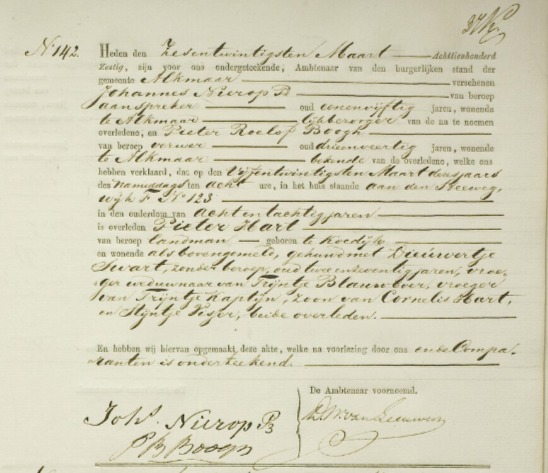 No 142.
Heden den Zesentwintigsten Maart Achttienhonderd
Zestig, zijn voor ons ondergeteekende, Ambtenaar van den burgerlijken stand der
gemeente Alkmaar verschenen
Johannes Nierop Pz van beroep
aanspreker oud eenenvijftig jaren, wonende
te Alkmaar lijkbezorger van de na te noemen
overledene, en Pieter Roelof Boogh
van beroep verwer oud drieenveertig jaren, wonende
te Alkmaar bekende van de overledene, welke ons
hebben verklaard, dat op den Vijfentwintigsten Maart dezes jaars
des namiddags ten acht ure, in het huis staande aan den Heerweg,
wijk F No 123
in den ouderdom van acht en tachtig jaren
is overleden Pieter Hart
van beroep landman geboren te Koedijk
en wonende als bovengemeld, gehuwd met Dieuwertje
Swart, zonder beroep, oud twee en zeventig jaren, vroe-
ger weduwnaar van Trijntje Blaauwboer, vroeger
van Trijntje Kaptijn, zoon van Cornelis Hart,
en Stijntje Visser, beide overleden.
En hebben wij hiervan opgemaakt, deze akte, welke na voorlezing door ons en de Compa-
ranten is onderteekend.
De Ambtenaar voornoemd.
Johs. Nierop Pz
P R Boogh
van Leeuwen